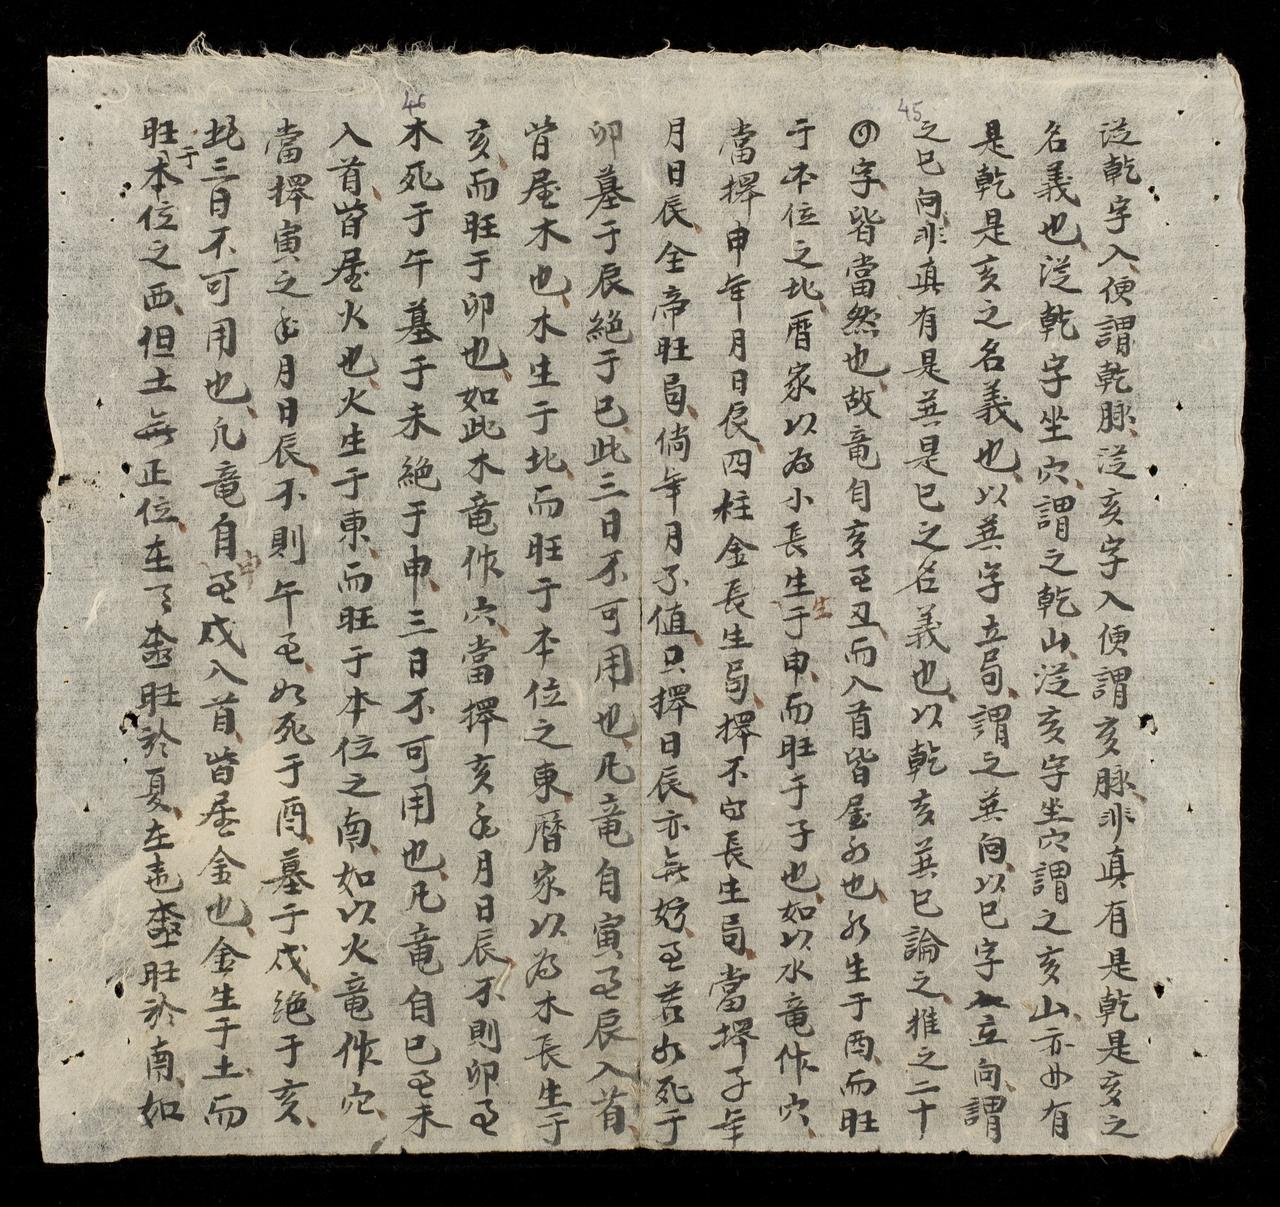 45
46
从乾字入便謂乾脉从亥字入便謂亥脉非真有是乾是亥之
名義也从乾字坐穴謂之乾山从亥字坐穴謂之亥山亦毋有
是乾是亥之名義也以巽字立局謂之巽向以巳字立向謂
之巳向非真有是巽是巳之名義也以乾亥巽巳論之推之二十
四字皆當然也故竜自亥至丑而入首皆屬水也水生于酉而旺
于本位之北曆家以為小長生于申而旺于子也如以水竜作穴
當擇申年月日辰四柱金長生局擇不得長生局當擇子年
月日辰全帝旺局倘年月不值只擇日辰亦無妨至若水死于
卯墓于辰絕于巳此三日不可用也凡竜自寅至辰入首
皆屋木也木生于北而旺于本位之東曆家以為木長生于
亥而旺于卯也如此木竜作穴當擇亥年月日辰不則卯至
木死于午墓于未絕于申三日不可用也凡竜自巳至未
入首皆屋火也火生于東而旺于本位之南如以火竜作穴
當擇寅之年月日辰不則午至如死于酉墓于戌絕于亥
此三日不可用也凡竜自申至戌入首皆居金也金生于土而
旺于本位之西但土無正位在天 旺於夏在 旺於南如